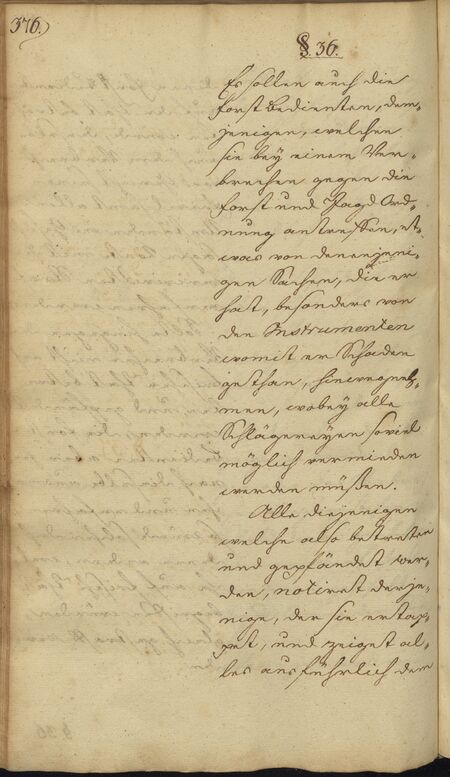 376.
§. 36.
Es sollen auch die
forst Bedienten, dem-
jenigen, welchen
sie bey einem Ver-
brechen gegen die
forst und Jagd Ord-
nung antreffen, et-
was von denenjeni-
gen Sachen, die er
hat, besonders von
den Instrumenten
womit er Schaden
gethan, hinwegneh-
men, wobey alle
Schlägereyen soviel
möglich vermieden
werden müßen.
Alle diejenigen
welche also betreten
und gepfändet wer-
den, notiret derje-
nige, der sie ertap-
pet, und zeiget al-
les ausführlich dem